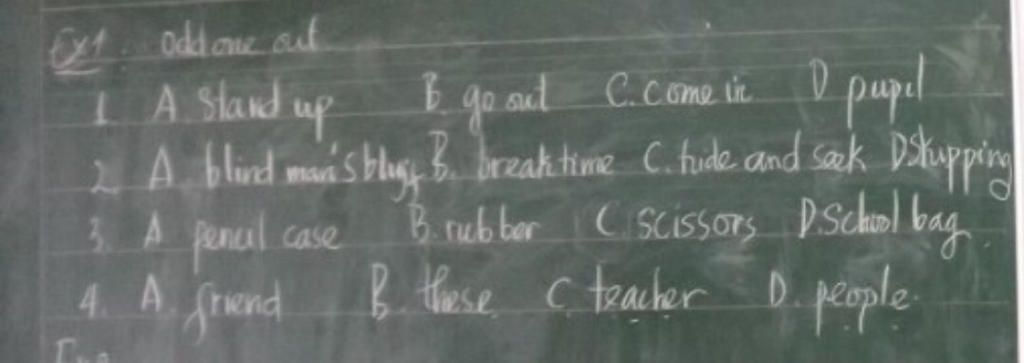 Ex1. Odd one out
1. A. Stand up B. go out C. come in D pupil
2. A. blind man's bluff B. break time C. hide and seek D Skipping
3. A pencil case B. rubber C. scissors D. School bag.
4. A. friend B. these C. teacher D. people.